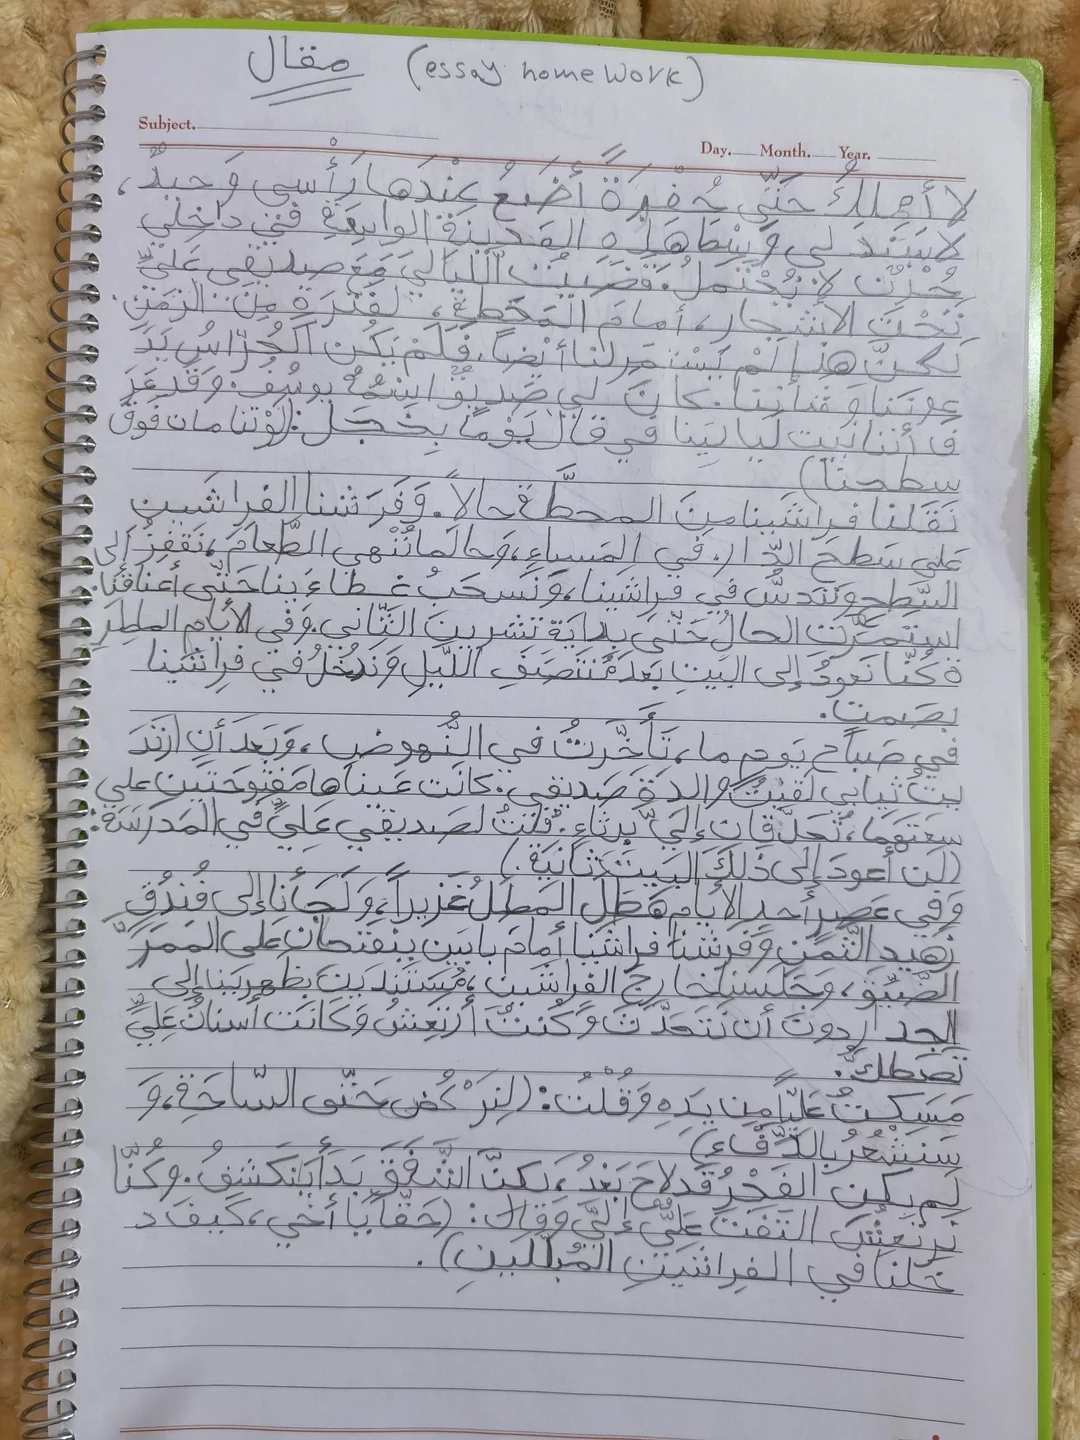 مقال (essay homework)
Subject.
Day. Month. Year.
لا أملكُ حَتّى حُفْرَةً أَضَعُ عِنْدَها رَأْسي وَحيدٌ،
لاسَنَدَ لي وَسَطَ هَذِهِ المَدينَةِ الواسِعَةِ في داخِلي
حُزْنٌ لا يُحْتَمَلُ. قَضَيْتُ اللّيالِيَ مَعَ صديقي عَلِيٍّ
تَحْتَ الأشجار، أمامَ المَحَطَّةِ، لفَتْرَةٍ مِنَ الزّمَن.
لَكنَّ هَذا لَمْ يَسْتَمِر لَنا أيْضاً. فَلَمْ يَكُن الحُرّاسُ يَدَ
عوننا وشأننا. كانَ لي صَديقٌ اسْمُهُ يوسُف. وَقَد عَرَ
فَ أننا نبيت ليالينا في قالَ يَوْماً بِخَجَل: (لَوْ تنامان فَوْقَ
سطحنا)
نَقَلنا فِراشَينا مِنَ المحطَّةِ حالاً. وَفَرَشنا الفِراشَين
عَلى سَطحِ الدّار. في المَساءِ، وَحالَما نُنْهي الطَّعامَ، نَقفِزُ إلى
السَّطحِ ونَندَسُّ في فِراشَينا، وَنَسحَبُ غِطاءَ بنا حَتّى أعناقنا.
استَمَرَّتِ الحالُ حَتّى بِدايَةِ تشرينَ الثّاني. وَفي الأيّامِ المطِرَ
ةِ كُنّا نَعودُ إلى البَيتِ بَعدَ مُنتَصَفِ اللّيلِ وَنَدخُلُ في فِراشَينا
بصَمت.
في صَباحِ يَومٍ ما، تَأَخَّرتُ في النُّهوضِ، وَبَعدَ أن ارتَدَ
يتُ ثيابي لَقيتُ والدَةَ صَديقي. كانَت عَيناها مَفتوحَتَين على
سعَتِهِما، تُحَدِّقانِ إلَيَّ بِرِثاءٍ. قُلتُ لصَديقي عَلِيٍّ في المَدرَسَة:
(لَن أعودَ إلى ذَلكَ البَيتِ ثانيَة.)
وَفي عَصرِ أحدِ الأيّامِ هَطَلَ المَطَلُ غَزيراً، وَلَجَأنا إلى فُندُقٍ
زَهيدِ الثَّمَن وَفَرشنا فِراشَينا أمامَ بابَين يَنفَتِحان عَلى المَمَرِّ
الضَّيِّقِ، وَجَلَسنا خارِجَ الفِراشَين، مُستَنِدَينَ بظهرَينا إلى
الجدار دونَ أن نَتَحَدَّثَ وَكُنتُ أرتَعِشُ وَكانَت أسنانُ عَلِيٍّ
تَصطَكُّ.
مَسَكتُ عَلِيّاً مِن يَدِهِ وَقُلتُ: (لِنَرْكُض حَتّى السّاحَةِ، وَ
سَنَشعُرُ بالدِّفْاء)
لَم يكن الفَجْرُ قَد لاحَ بَعْدُ، لكنَّ الشَّفَقَ بَدَأَ يَنكَشفُ. وكُنّا
نَرتَعِشُ التَفَتَ عَلِيٌّ إلَيَّ وَقال: (حَقّاً يا أخي، كَيفَ د
خَلنا في الفِراشَينِ المُبَلَّلَينِ).